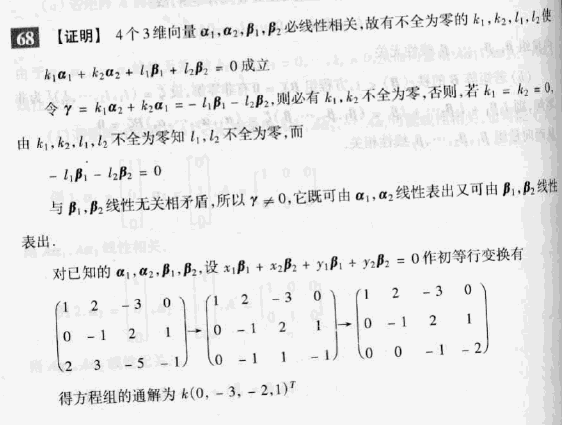 68 【证明】 4个3维向量 α₁,α₂,β₁,β₂ 必线性相关,故有不全为零的 k₁,k₂,l₁,l₂使
k₁α₁ + k₂α₂ + l₁β₁ + l₂β₂ = 0 成立
令 γ = k₁α₂ + k₂α₁ = - l₁β₁ - l₂β₂,则必有 k₁,k₂ 不全为零,否则,若 k₁ = k₂ = 0,
由 k₁,k₂,l₁,l₂ 不全为零知 l₁,l₂ 不全为零,而
- l₁β₁ - l₂β₂ = 0
与 β₁,β₂ 线性无关相矛盾,所以 γ ≠ 0,它既可由 α₁,α₂ 线性表出又可由 β₁,β₂ 线性
表出.
对已知的 α₁,α₂,β₁,β₂,设 x₁β₁ + x₂β₂ + y₁β₁ + y₂β₂ = 0 作初等行变换有
(1 2 -3 0) (1 2 -3 0) (1 2 -3 0)
(0 -1 2 1) → (0 -1 2 1) → (0 -1 2 1)
(2 3 -5 -1) (0 -1 1 -1) (0 0 -1 -2)
得方程组的通解为 k(0, -3, -2,1)ᵀ